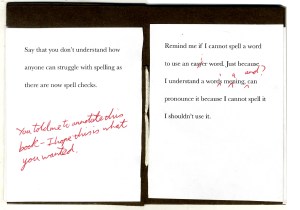 Say that you don't understand how
anyone can struggle with spelling as
there are now spell checks.
You told me to annotate this
book - I hope this is what
you wanted.
Remind me if I cannot spell a word
to use an easier word. Just because
and?
I understand a words meaning, can
pronounce it because I cannot spell it
I shouldn't use it.